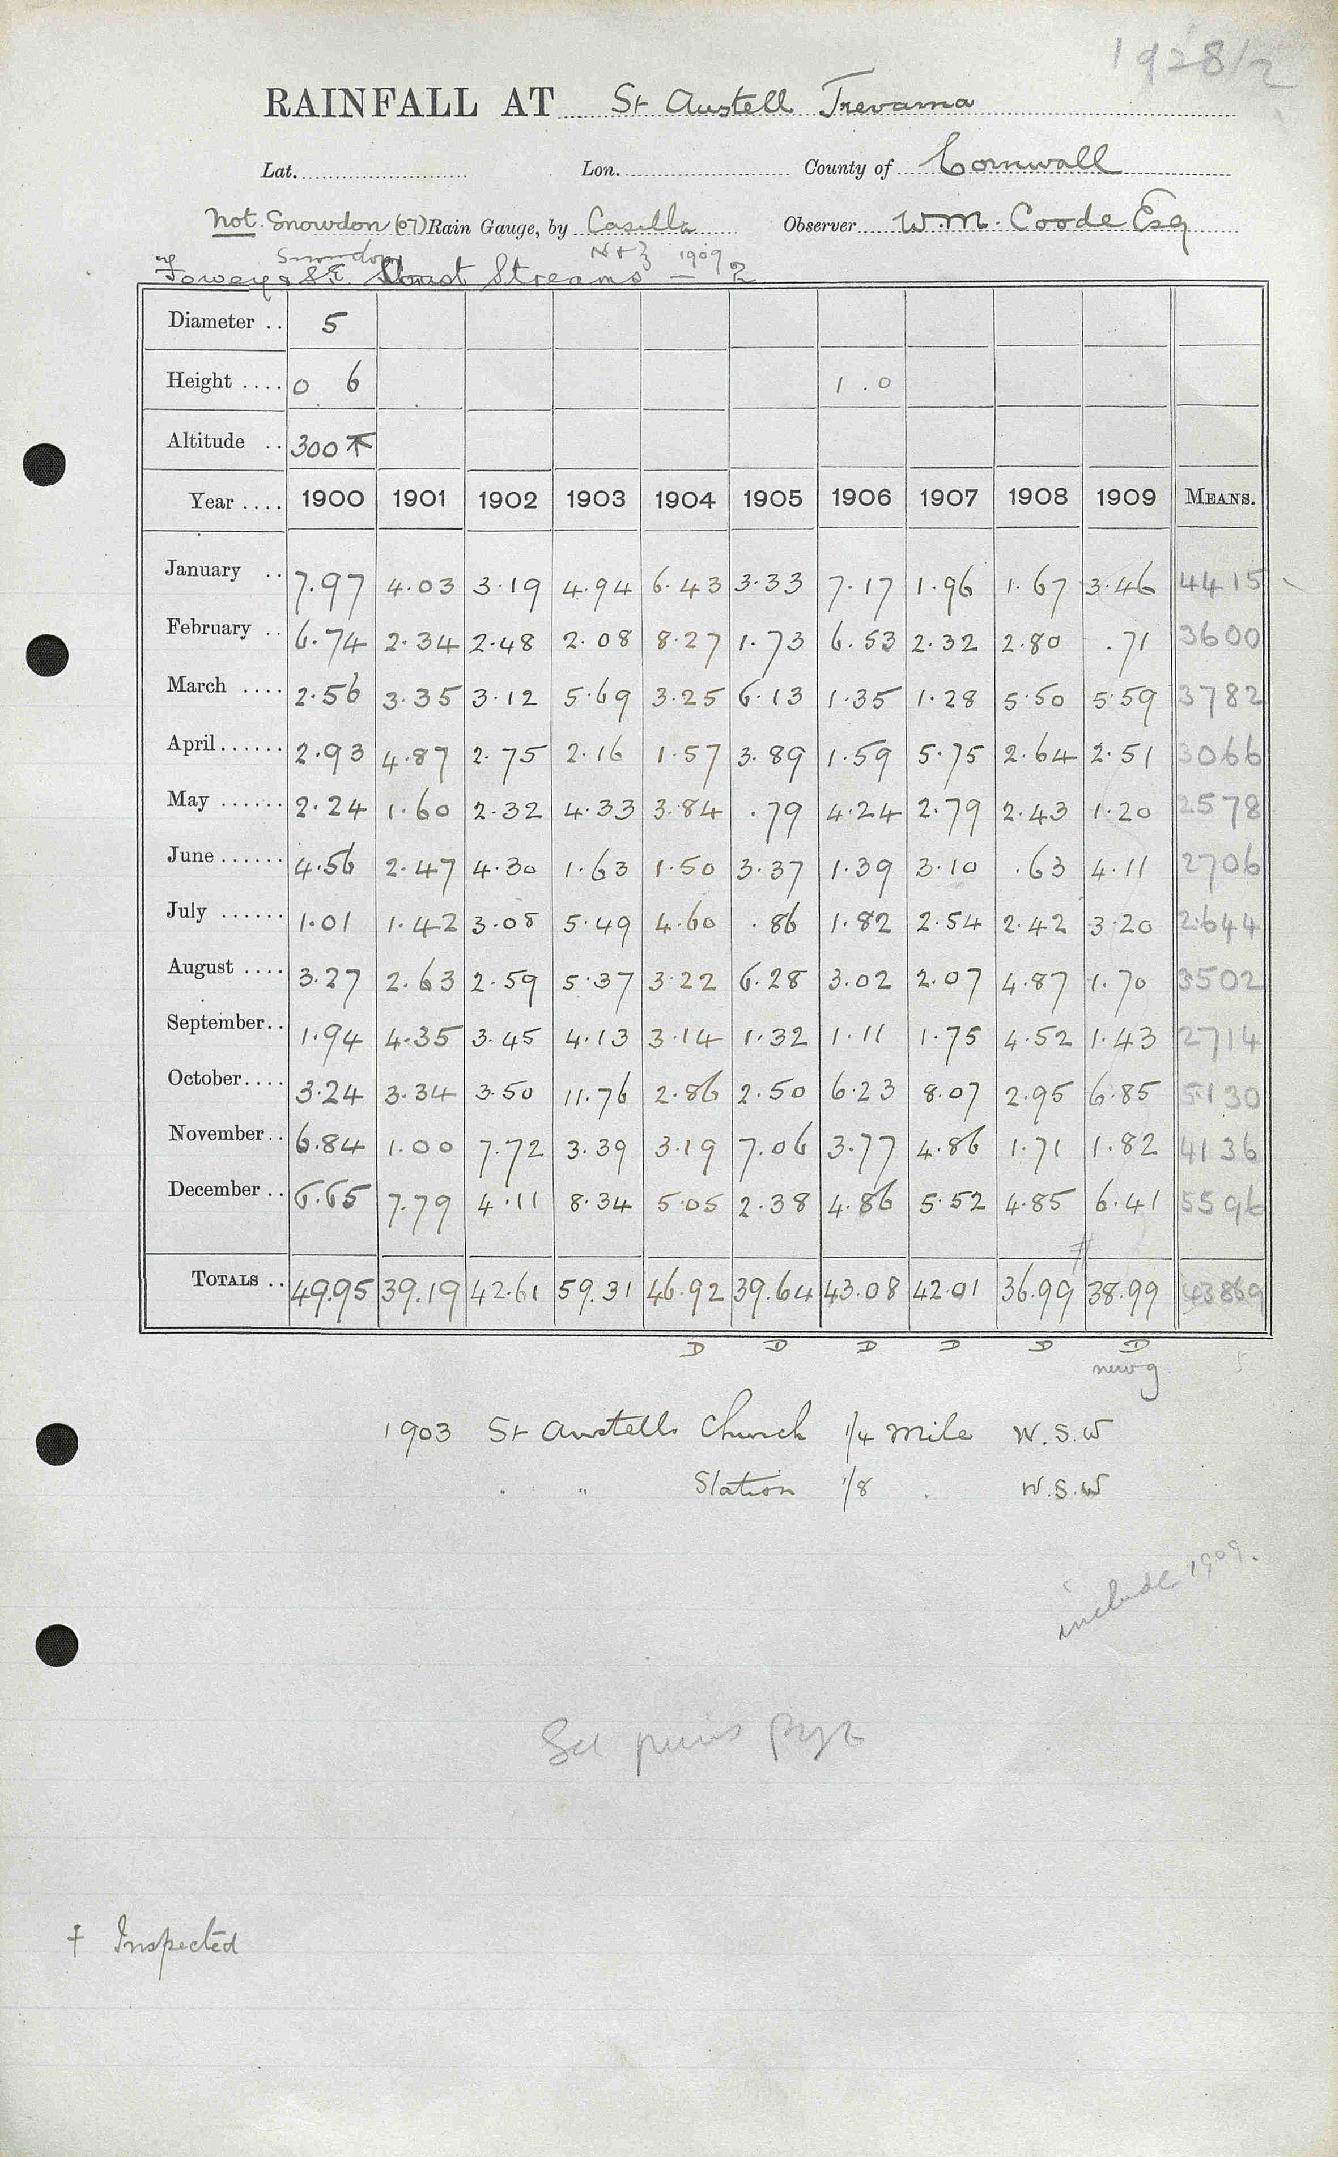 1928/2
RAINFALL AT St Austell Trevarna
Lat. Lon. County of Cornwall
Not Snowdon (07) Rain Gauge, by Casella Observer W.M. Coode Esq
Snowdon N+Z 1909
Fowey & St. Streams — 2
Diameter .. 5
Height .... 0 6 1.0
Altitude .. 300
Year .... 1900 1901 1902 1903 1904 1905 1906 1907 1908 1909 MEANS.
January .. 7.97 4.03 3.19 4.94 6.43 3.33 7.17 1.96 1.67 3.46 4415
February .. 6.74 2.34 2.48 2.08 8.27 1.73 6.53 2.32 2.80 .71 3600
March .... 2.56 3.35 3.12 5.69 3.25 6.13 1.35 1.28 5.50 5.59 3782
April ...... 2.93 4.87 2.75 2.16 1.57 3.89 1.59 5.75 2.64 2.51 3066
May ...... 2.24 1.60 2.32 4.33 3.84 .79 4.24 2.79 2.43 1.20 2578
June ...... 4.56 2.47 4.30 1.63 1.50 3.37 1.39 3.10 .63 4.11 2706
July ...... 1.01 1.42 3.08 5.49 4.60 .86 1.82 2.54 2.42 3.20 2644
August .... 3.27 2.63 2.59 5.37 3.22 6.28 3.02 2.07 4.87 1.70 3502
September .. 1.94 4.35 3.45 4.13 3.14 1.32 1.11 1.75 4.52 1.43 2714
October .... 3.24 3.34 3.50 11.76 2.86 2.50 6.23 8.07 2.95 6.85 5130
November .. 6.84 1.00 7.72 3.39 3.19 7.06 3.77 4.86 1.71 1.82 4136
December .. 6.65 7.79 4.11 8.34 5.05 2.38 4.86 5.52 4.85 6.41 5596
TOTALS .. 49.95 39.19 42.61 59.31 46.92 39.64 43.08 42.01 36.99 38.99 43869
D D D D D D
new g 5
1903 St Austells Church 1/4 Mile W.S.W
. " Station 1/8 . W.S.W
include 1909.
† Inspected